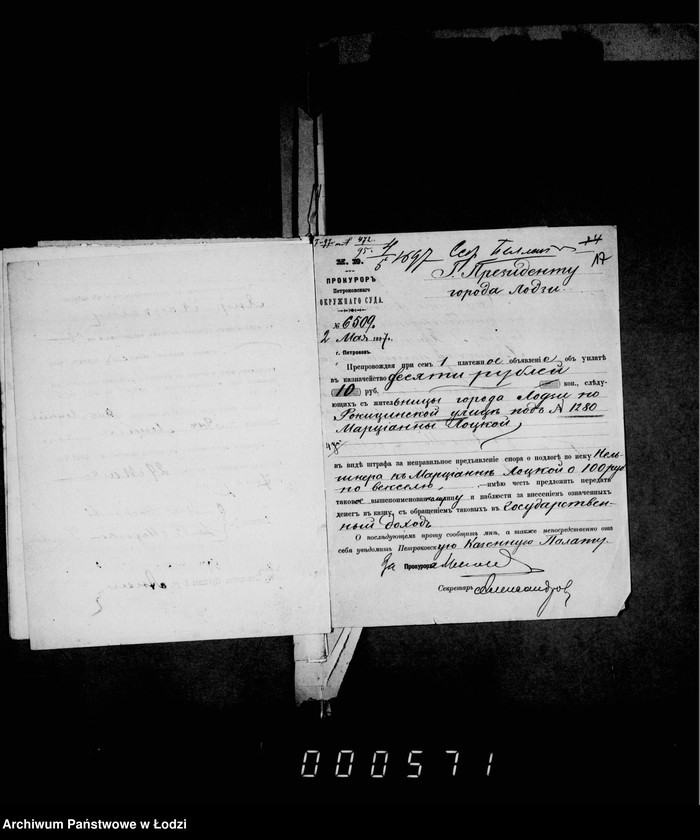 472
95
4/5 1897
14
17
М. Ю.
Г. Президенту
города Лодзи.
ПРОКУРОРЪ
Петроковскаго
ОКРУЖНАГО СУДА.
№ 6509.
2 Мая 1897 г.
г. Петроковъ.
Препровождая при семъ 1 платежное объявленіе объ уплатѣ
въ казначейство десяти рублей
10 руб. коп., слѣду-
ющихъ съ жительницы города Лодзи по
Рокицинской улицѣ подъ № 1280
Марціанны Лоцкой
въ видѣ штрафа за неправильное предъявленіе спора о подлогѣ по иску
къ Марціаннѣ Лоцкой о 100 руб
по векселю, имѣю честь предложить передать
таковое вышепоименованному и наблюсти за внесеніемъ означенныхъ
денегъ въ казну, съ обращеніемъ таковыхъ въ Государствен-
ный доходъ
О послѣдующемъ прошу сообщить мнѣ, а также непосредственно отъ
себя увѣдомить Петроковскую Казенную Палату.
За Прокурора
Секретарь Александровъ
000571
Archiwum Państwowe w Łodzi